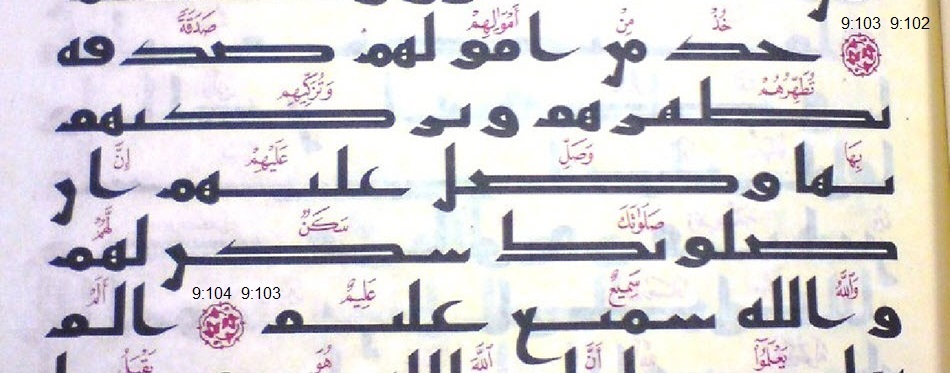 9:102 9:103
خُذْ مِنْ أَمْوَٰلِهِمْ صَدَقَةً
خذ من امولهم صدقة
تُطَهِّرُهُمْ وَتُزَكِّيهِم
تطهرهم و تزكيهم
بِهَا وَصَلِّ عَلَيْهِمْ إِنَّ
بها و صل عليهم ان
صَلَوٰتَكَ سَكَنٌ لَّهُمْ
صلوتك سكن لهم
9:103 9:104
وَٱللَّهُ سَمِيعٌ عَلِيمٌ أَلَمْ
و الله سميع عليم الم
يَعْلَمُوٓا۟ أَنَّ ٱللَّهَ هُوَ يَقْبَلُ